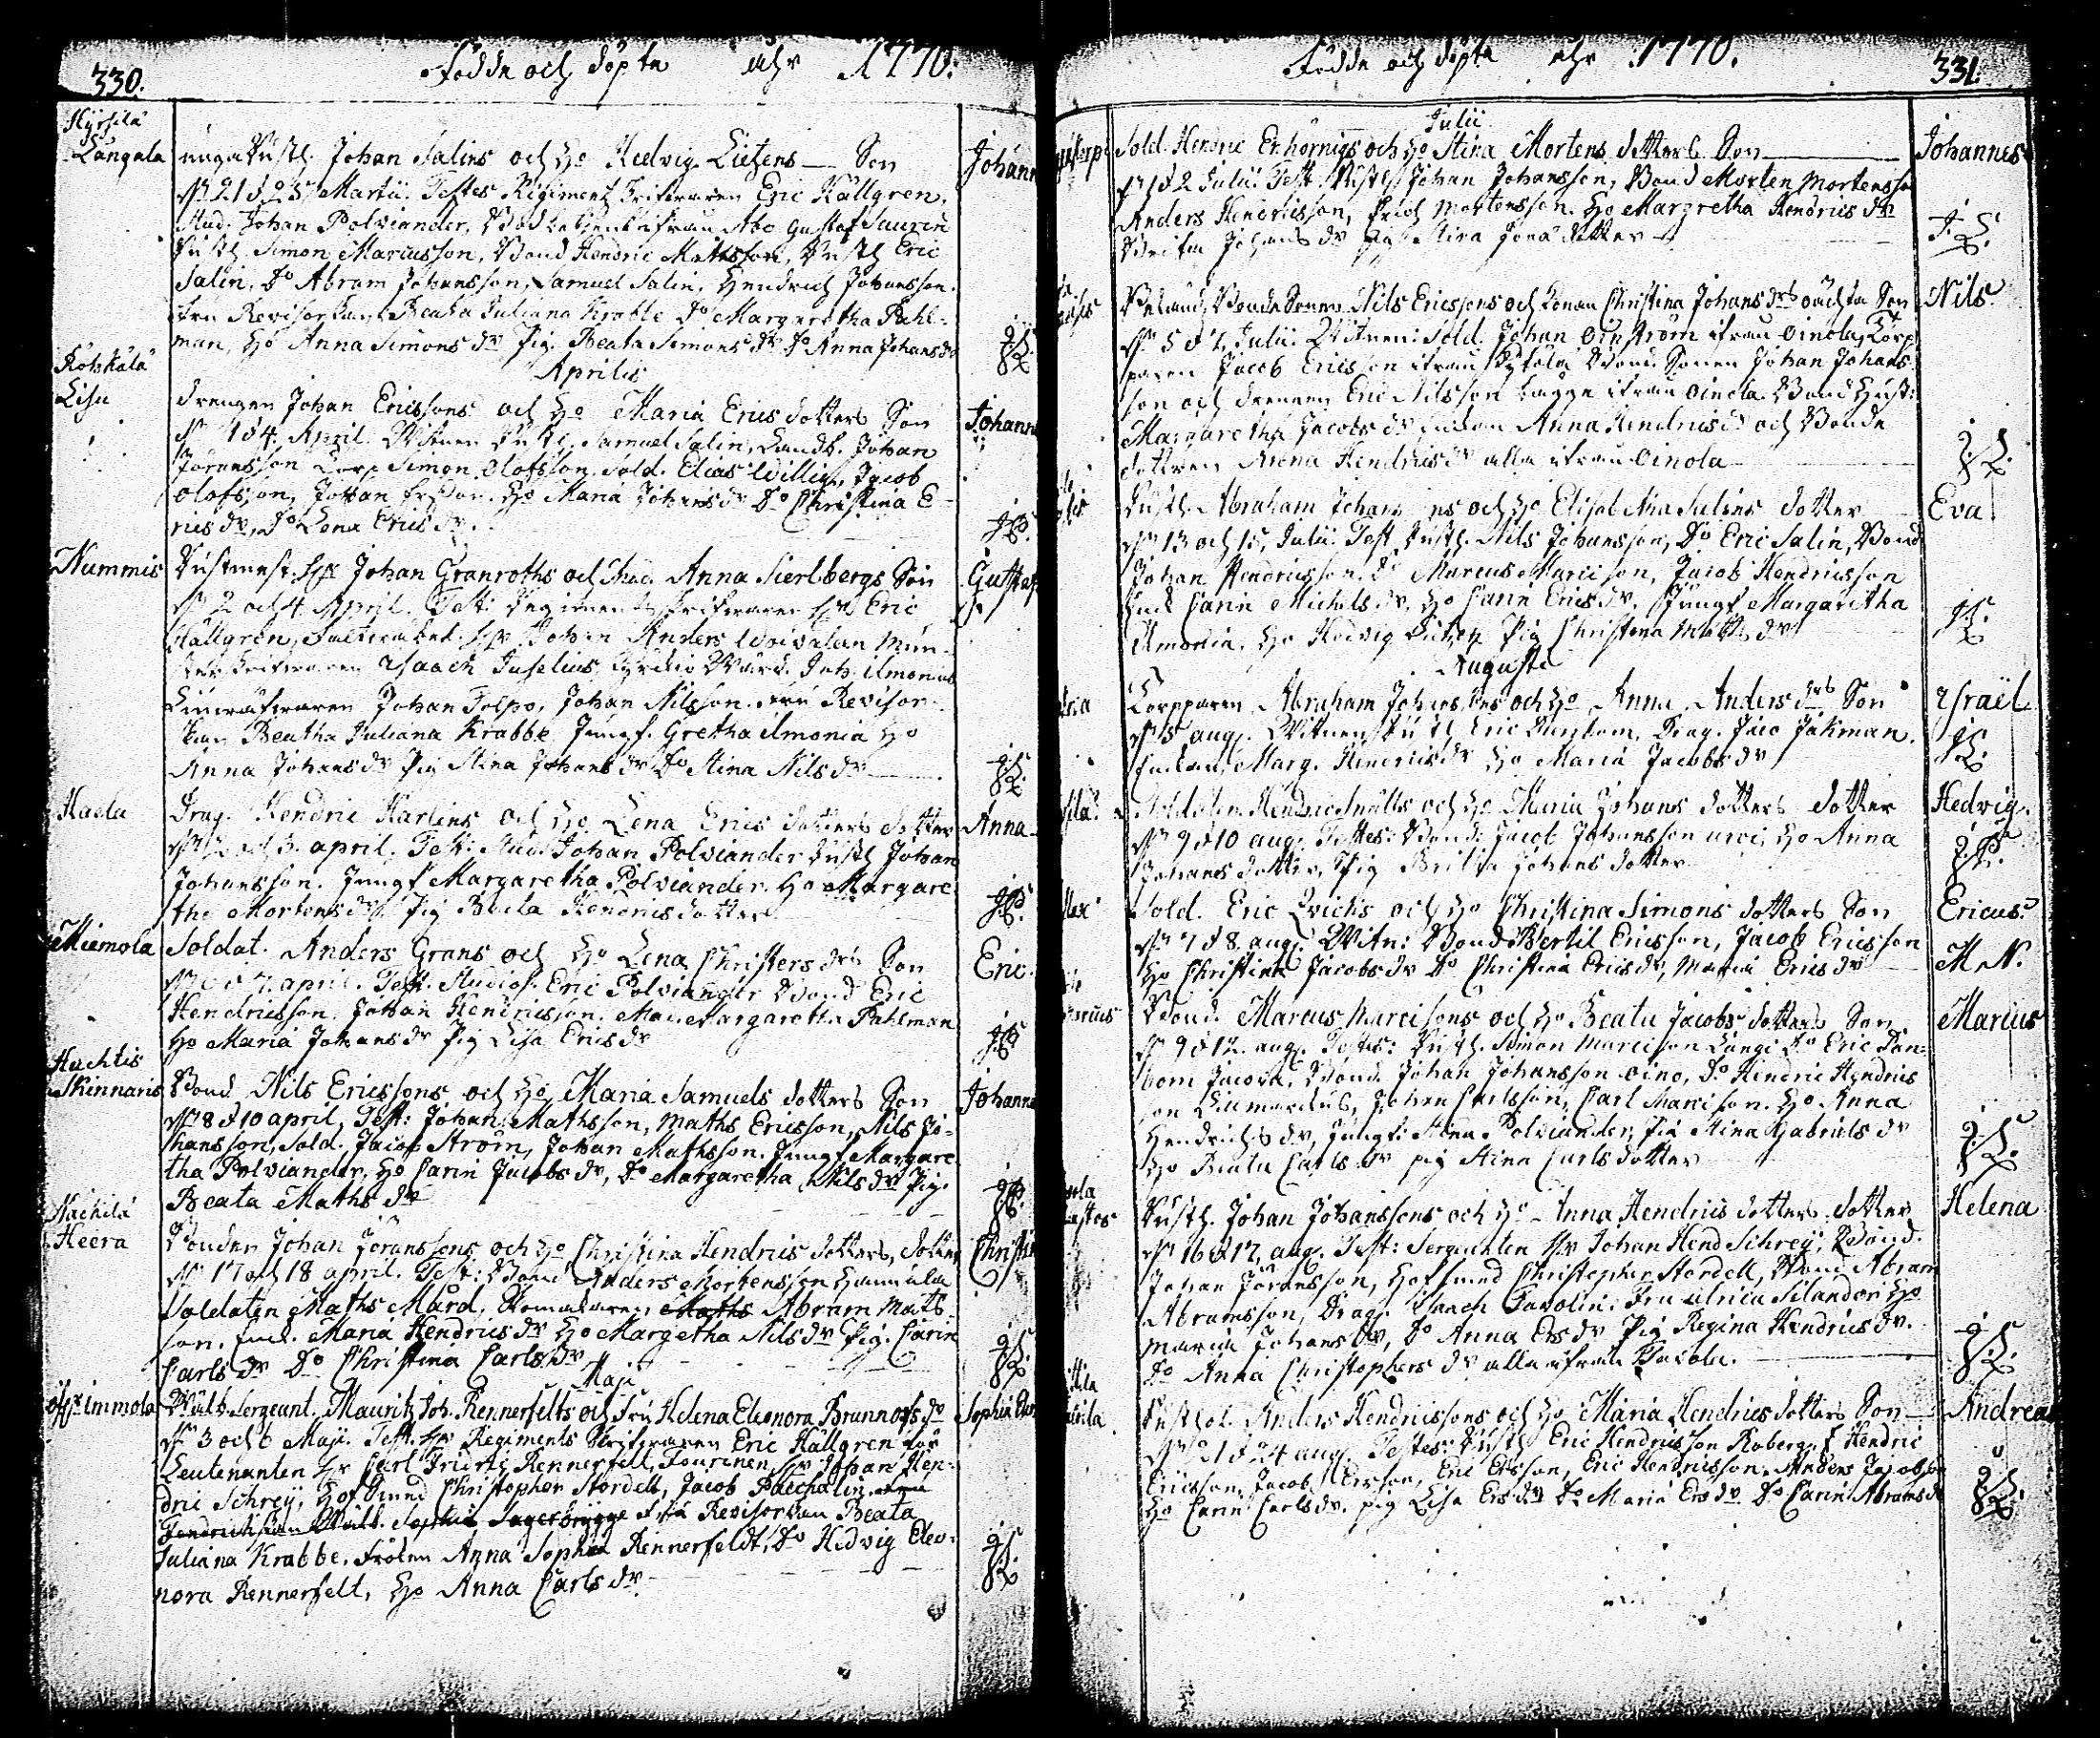 330.
Födde och döpte åhr 1770.
Hyrsilä
Långala
unga Rusth. Johan Salins och Ho Hedvig Lietzens Son
Johann
21 d 25 Martii. Testes Regiments Skrifvaren Eric Hällgren,
Stud. Johan Polviander, ifrån Åbo Gustaf Saurén
Rusth. Simon Marcusson, Bond. Hendric Mathsson, Rusth. Eric
Salin, Do Abram Johansson, Samuel Salin, Hendrich Johansson.
Fru Revisorskan Beata Juliana Krabbe Do Margaretha Pahl-
man, Ho Anna Simons dr Pig. Beata Simons dr Do Anna Johans dr
Aprilis
Koiskala
Lisu
Drengen Johan Ericssons och Ho Maria Erics dotters Son
Johann
1 d 4. April. Witnen Rusth. Samuel Salin, Landb. Johan
Göransson Corp. Simon Olofsson. Sold. Elias Willig, Jacob
Olofsson, Johan Ersson. Ho Maria Johans dr Do Christina E-
rics dr, Do Lena Erics dr.
Nummis
Rustmest. Hr Johan Granroths och Mad. Anna Sierlbergs Son
Gustaf
2 och 4 April. Test: Regiments Skrifvaren Hr Eric
Hällgren, Hr Johan Anders Mun-
ster Skrifvaren Isaach Juselius, Johan Ilmonius
Johan Tolpo, Johan Nilsson. Fru Revisor-
skan Beatha Juliana Krabbe Jungf. Gretha Ilmonia Ho
Anna Johans dr Pig Stina Johans dr Do Stina Nils dr
Haelu
Drag. Hendric Harlins och Ho Lena Erics dotters dotter
Anna
och 3. april. Test: Stud. Johan Polviander Rusth Johan
Johansson. Jungf Margaretha Polviander. Ho Margare
tha Mortens dr. Pig Beata Hendrics dotter
Miemola
Soldat. Anders Grans och Ho Lena Christers drs Son
Eric.
6 d 7. april. Test. Studios. Eric Polviander Bond Eric
Hendricsson. Johan Hendricsson. Mad. Margaretha Pahlman
Ho Maria Johans dr Pig Lisa Erics dr
Huchtis
Skinnaris
Bond. Nils Ericssons och Ho Maria Samuels dotters Son
Johanne
8 d 10 april, Test: Johan Mathsson, Maths Ericsson, Nils Jo-
hansson, Sold. Jacob Ström, Johan Mathsson. Jungf Margare
tha Polviander, Ho Carin Jacobs dr, Do Margaretha Nils dr Pig.
Beata Maths dr
Hachila
Heera
Bonden Johan Göranssons och Ho Christina Hendrics dotters, dotter
Christin
17 och 18 april. Test: Bond Anders Mortensson
Soldaten Maths Mård, Skomakaren Maths Abram Mats-
son, Enck. Maria Hendrics dr Ho Margetha Nils dr Pig. Carin
Carls dr Do Christina Carls dr
Maji
Immola
Sergeant. Mauritz Joh. Rennerfelts och Fru Helena Eleonora Brunnofs dr
Sophia
3 och 6 Maji. Test. Hr Regiments Skrifvaren Eric Hällgren för
Leutenanten Hr Carl Rennerfelt, Hr Johan Hen-
dric Schrey, Christopher Stordell, Jacob Paschalin,
Sophia Jagerbrygge Fru Revisorskan Beata
Juliana Krabbe, Fröken Anna Sophia Rennerfeldt, Do Hedvig Eleo-
nora Rennerfelt, Ho Anna Carls dr
Födde och döpte åhr 1770.
331.
Julii
Sold. Hendric Enhörnigs och Ho Stina Mortens dotters Son
Johannes
1 d 2 Julii. Test: Rusth. Johan Johansson, Bond Morten Mortensson
Anders Hendricsson, Erich Mortensson. Ho Margretha Hendrics dr
Brita Johans dr Pig Stina Jona dotter
Bonde Sonen Nils Ericssons och Konan Christina Johans drs oächta Son
Nils
5 d 7 Julii. Witnen: Sold. Johan Öinström ifrån Oinola, Torp
paren Jacob Ericsson ifrån Bonde Sonen Johan Johans
son och drengen Eric Nilsson Lagge ifrån Oinola. Bond Hust:
Margaretha Jacobs dr Enckan Anna Hendrics dr och Bonde
dottren Anna Hendrics dr alla ifrån Oinola
Rusth. Abraham Johanssons och Ho Elisab. Salins dotter
Eva
13 och 15 Julii. Test Rusth. Nils Johansson, Do Eric Salin, Bond
Johan Hendricsson. Do Marcus Marcison, Jacob Hendricsson
Enck Carin Michels dr, Ho Carin Erics dr. Jungf. Margaretha
Ilmonia. Ho Hedvig Pig Christina Matts dr
Augusti
Torpparen Abraham Johanssons och Ho Anna Anders drs Son
Israël
5 aug. Witnen Rusth Eric Drag. Jaco Jakman.
Enckan Marg. Hendrics dr Ho Maria Jacobs dr
Soldaten Hendric Snälls och Ho Maria Johans dotters dotter
Hedvig
9 d 10 aug. Testes: Bond: Jacob Johansson Ho Anna
Johans dotter, Pig Britha Johans dotter
Sold. Eric Qvicks och Ho Christina Simons dotters Son
Ericus
7 d 8. aug. Witn: Bond Bertil Ericsson, Jacob Ericsson
M N.
Ho Christina Jacobs dr Do Christina Erics dr, Maria Erics dr
Bond. Marcus Marcisons och Ho Beata Jacobs dotters Son
Marcus
9 d 12. aug. Testes: Rusth. Simon Marcison Do Eric
Jacob. Bond. Johan Johansson Oino, Do Hendric Hendrics
son Johan Carlsson, Carl Marcison. Ho Anna
Hendrichs dr, Jungf: Stina Polviander, Pig Stina Gabriels dr
Ho Beata Carls dr pig Stina Carls dotter
Rusth. Johan Johanssons och Ho Anna Hendrics dotters dotter
Helena
16 d 17, aug. Test: Sergeanten Hr Johan Hend Schrey, Bond.
Johan Göransson, Christopher Stordell, Bond Abram
Abramsson, Drag. Isaach Tavolin. Fru Ulrica Silander Ho
Maria Johans dr, Do Anna Ers dr Pig Regina Hendrics dr.
Do Anna Christophers dr alla ifrån Tavola.
Rusthol. Anders Hendricssons och Ho Maria Hendrics dotters Son
Andreas
21 d 24 aug. Testes: Rusth Eric Hendricsson Roberg, Hendric
Ericsson, Jacob Ersson, Eric Ersson, Eric Hendricsson, Anders Jacobson
Ho Carin Carls dr. pig Lisa Ers dr Do Maria Ers dr. Do Carin Abrams dr